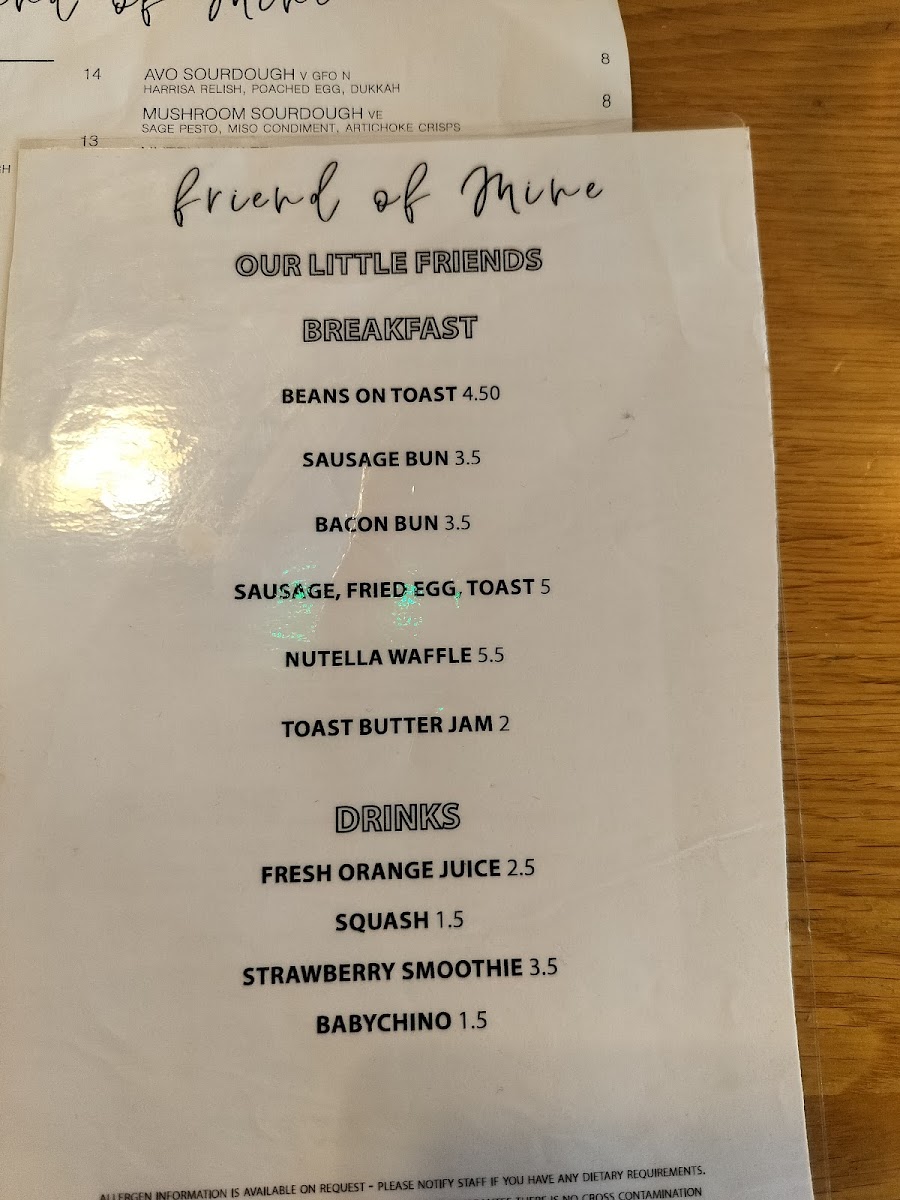 14
AVO SOURDOUGH V GFO N 8
HARRISA RELISH, POACHED EGG, DUKKAH
MUSHROOM SOURDOUGH VE 8
SAGE PESTO, MISO CONDIMENT, ARTICHOKE CRISPS
13
friend of Mine
OUR LITTLE FRIENDS
BREAKFAST
BEANS ON TOAST 4.50
SAUSAGE BUN 3.5
BACON BUN 3.5
SAUSAGE, FRIED EGG, TOAST 5
NUTELLA WAFFLE 5.5
TOAST BUTTER JAM 2
DRINKS
FRESH ORANGE JUICE 2.5
SQUASH 1.5
STRAWBERRY SMOOTHIE 3.5
BABYCHINO 1.5
ALLERGEN INFORMATION IS AVAILABLE ON REQUEST - PLEASE NOTIFY STAFF IF YOU HAVE ANY DIETARY REQUIREMENTS.
THERE IS NO CROSS CONTAMINATION